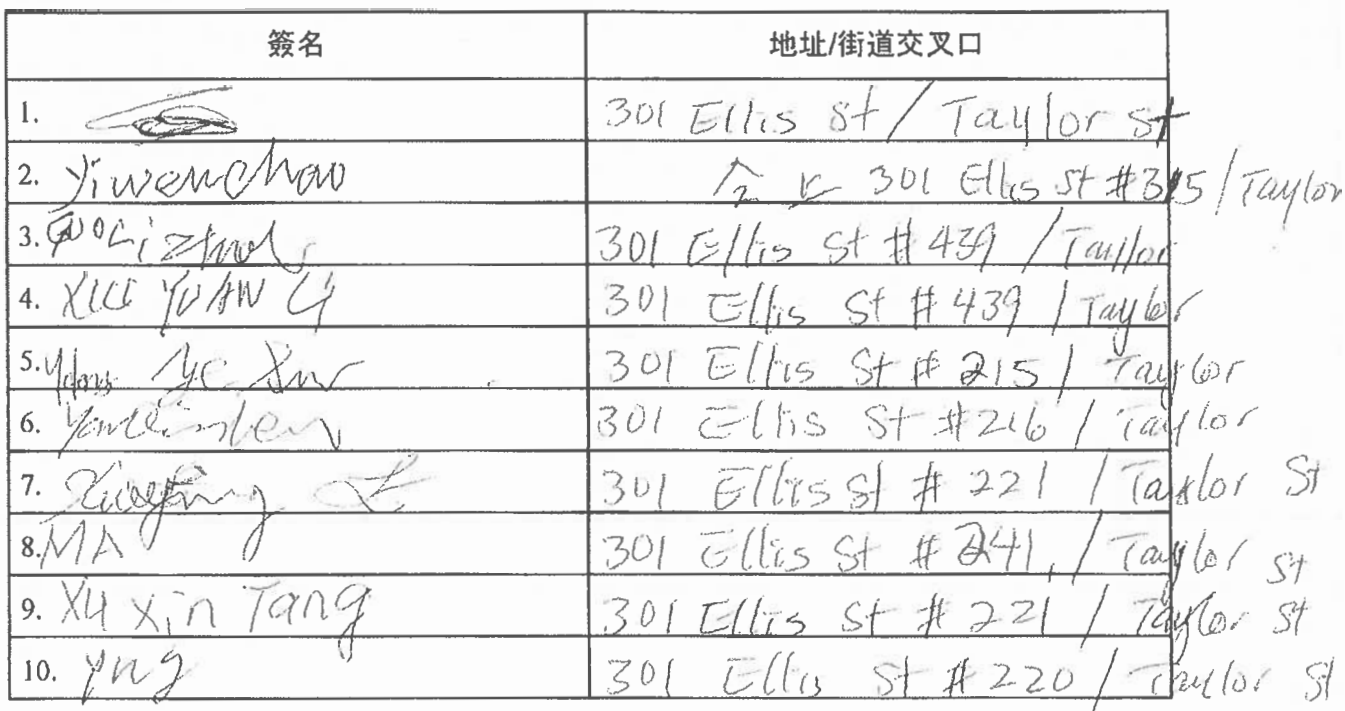 簽名 地址/街道交叉口
1. 301 Ellis St / Taylor St
2. Yiwen Chao 301 Ellis St #315 / Taylor
3. 301 Ellis St # 439 / Taylor
4. XIU YUAN LI 301 Ellis St # 439 / Taylor
5. 301 Ellis St # 215 / Taylor
6. 301 Ellis St # 216 / Taylor
7. 301 Ellis St # 221 / Taylor St
8. MA 301 Ellis St # 241 / Taylor St
9. Xu Xin Tang 301 Ellis St # 221 / Taylor St
10. 301 Ellis St # 220 / Taylor St